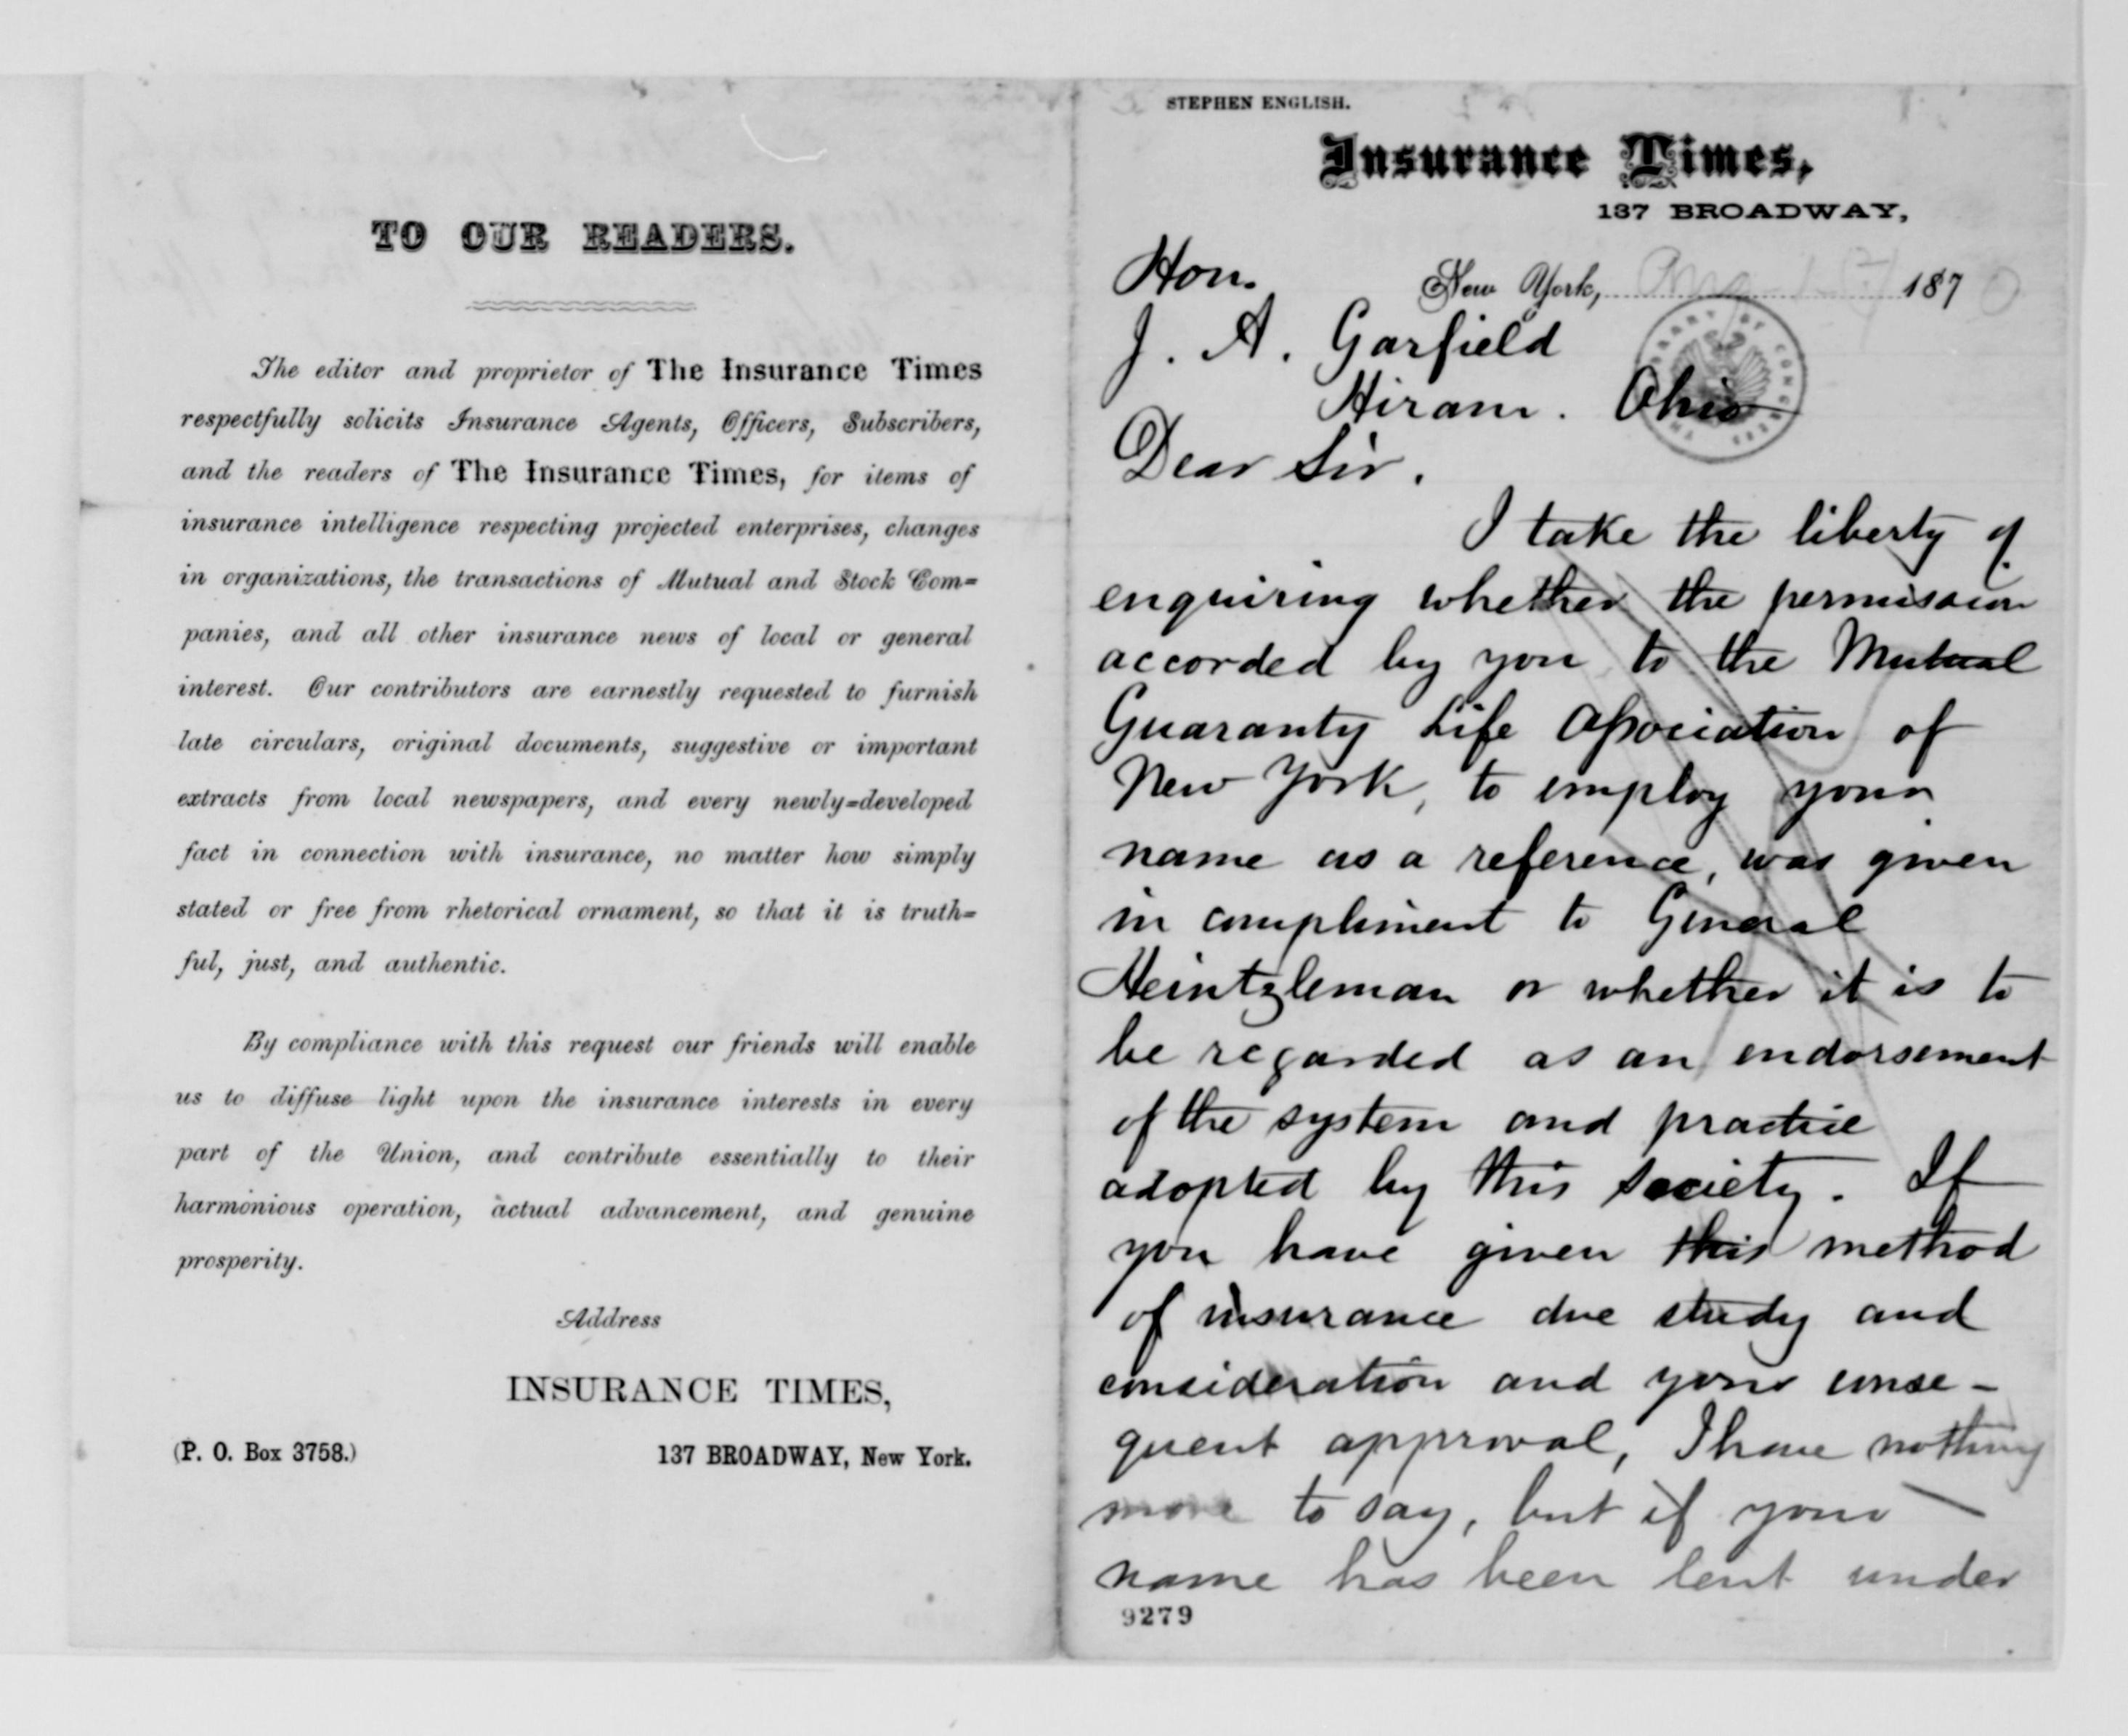 TO OUR READERS.
The editor and proprietor of The Insurance Times
respectfully solicits Insurance Agents, Officers, Subscribers,
and the readers of The Insurance Times, for items of
insurance intelligence respecting projected enterprises, changes
in organizations, the transactions of Mutual and Stock Com=
panies, and all other insurance news of local or general
interest. Our contributors are earnestly requested to furnish
late circulars, original documents, suggestive or important
extracts from local newspapers, and every newly=developed
fact in connection with insurance, no matter how simply
stated or free from rhetorical ornament, so that it is truth=
ful, just, and authentic.
By compliance with this request our friends will enable
us to diffuse light upon the insurance interests in every
part of the Union, and contribute essentially to their
harmonious operation, actual advancement, and genuine
prosperity.
Address
INSURANCE TIMES,
(P. O. Box 3758.) 137 BROADWAY, New York.
STEPHEN ENGLISH.
Insurance Times,
137 BROADWAY,
Hon. New York, 1870
J. A. Garfield
Hiram. Ohio
Dear Sir.
I take the liberty of
enquiring whether the permission
accorded by you to the Mutual
Guaranty Life Association of
New York, to employ your
name as a reference, was given
in compliment to General
Heintzleman or whether it is to
be regarded as an endorsement
of the system and practice
adopted by this Society. If
you have given this method
of insurance due study and
consideration and your conse-
quent approval, I have nothing
more to say, but if your
name has been lent under
9279